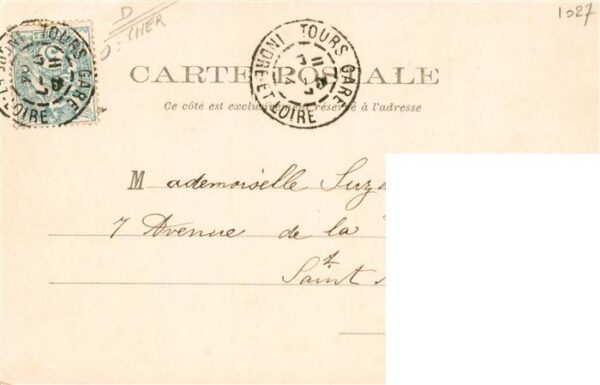 1027
D
CHER
TOURS GARE
INDRE-ET-LOIRE
TOURS GARE
INDRE-ET-LOIRE
CARTE POSTALE
Ce côté est exclusivement réservé à l'adresse
Mademoiselle Suz
7 Avenue de la
Saint